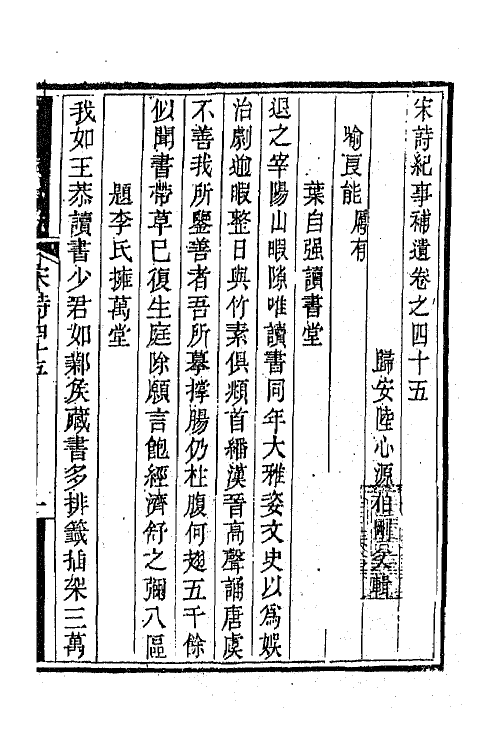 宋詩紀事補遺卷之四十五
歸安陸心源伯剛父輯
喻良能厲有
葉自强讀書堂
退之宰陽山暇隙唯讀書同年大雅姿文史以為娛
治劇逾暇整日與竹素俱頫首繙漢晉高聲誦唐虞
不善我所鑒善者吾所摹撐腸仍柱腹何翅五千餘
似聞書帶草已復生庭除願言飽經濟舒之彌八區
題李氏擁萬堂
我如王恭讀書少君如鄴侯藏書多排籤插架三萬
宋詩四十五
一